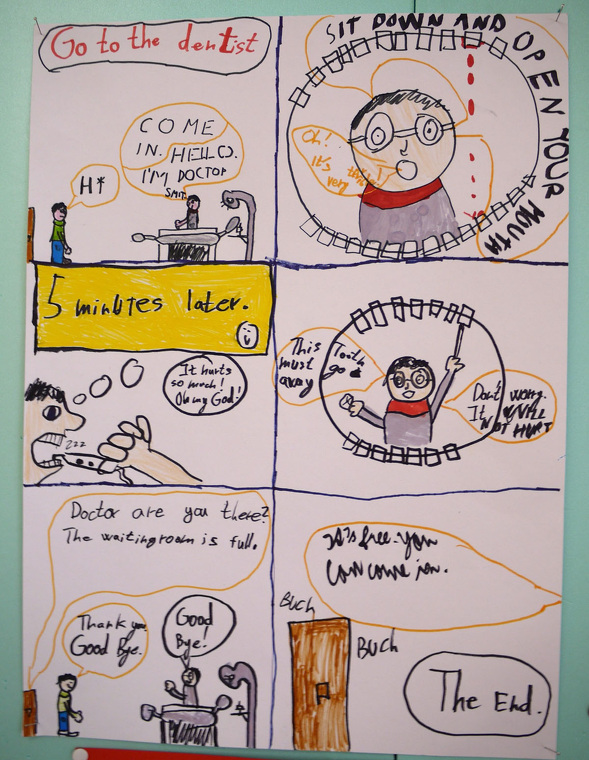 Go to the dentist
COME
IN. HELLO.
I'M DOCTOR
SMIT.
Hi
SIT DOWN AND OPEN YOUR MOUTH
Oh!
It's
very
5 minutes later.
It hurts
so much!
Oh my God!
zzz
This Tooth
must go
away
Don't worry.
It WILL
NOT HURT
Doctor are you there?
The waitingroom is full.
Thank you.
Good Bye.
Good
Bye!
It's free. you
can come in.
BUCH
BUCH
The End.